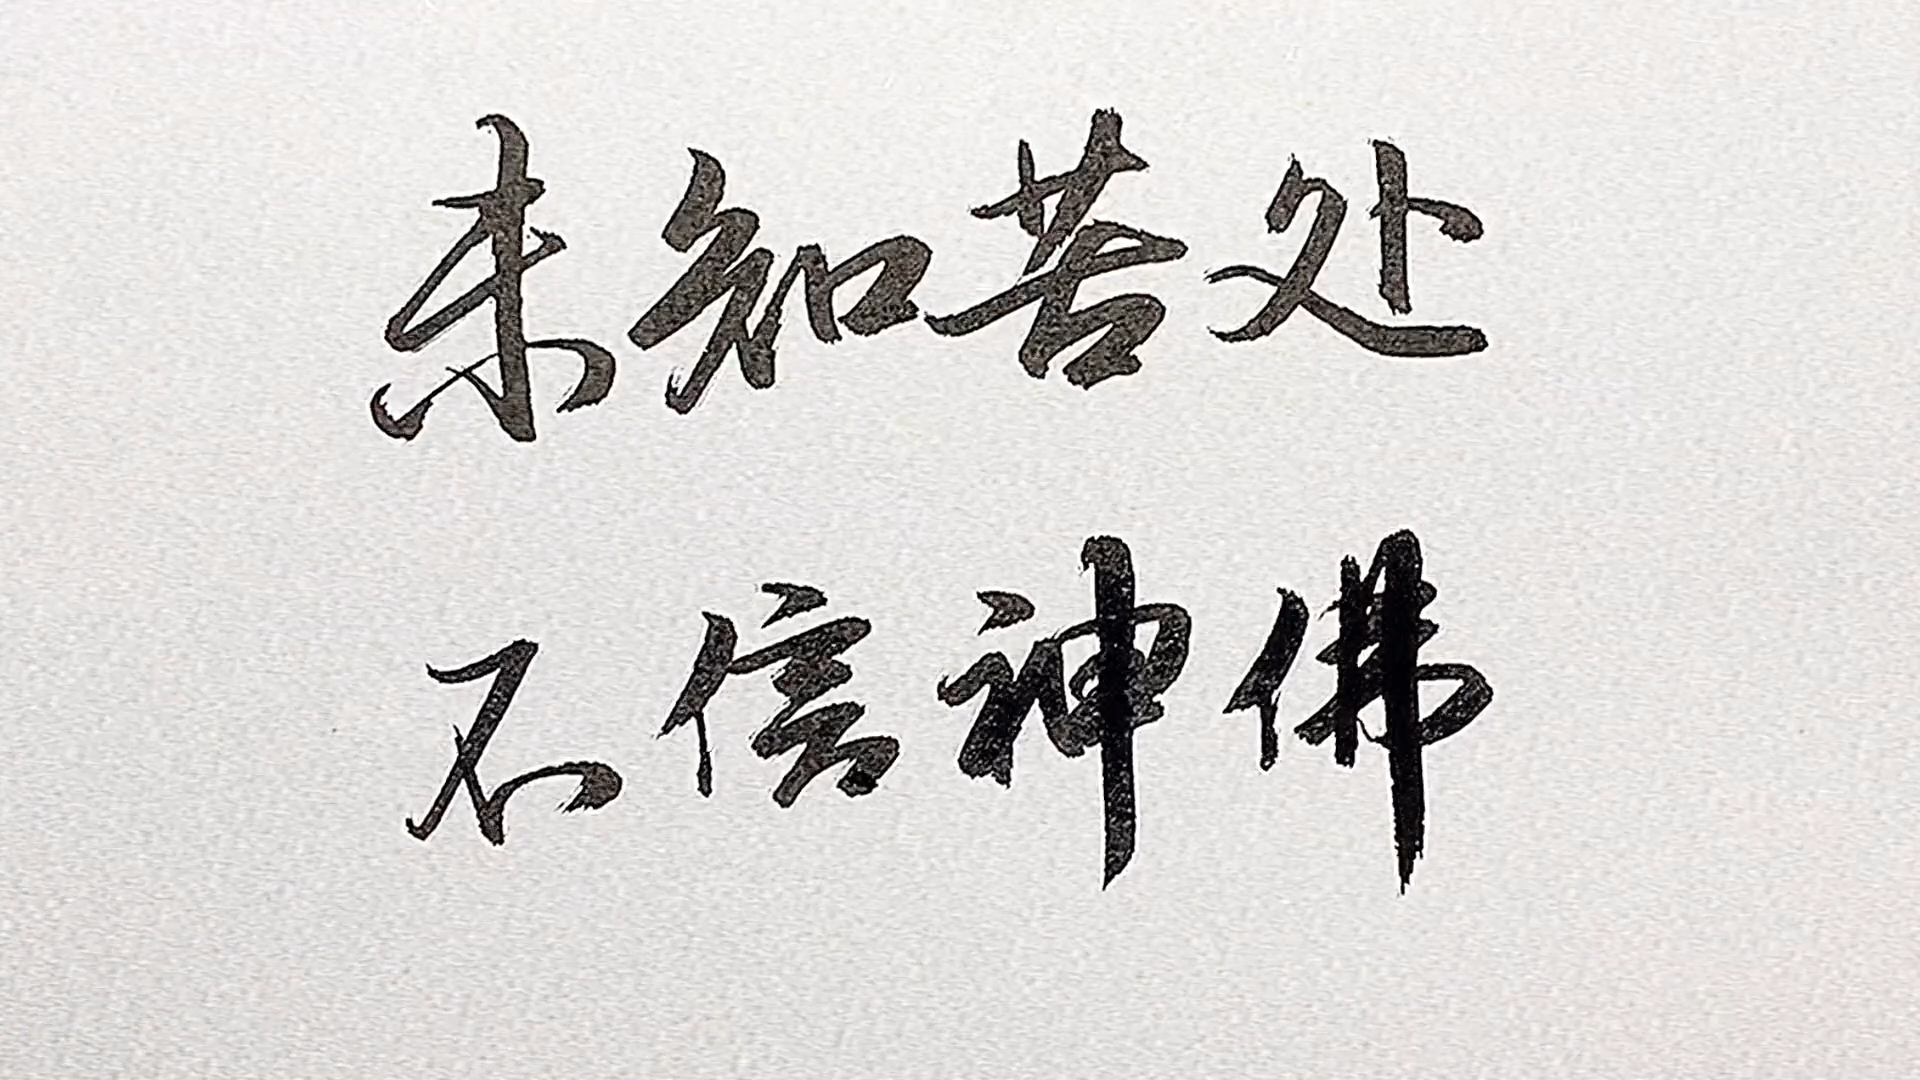 未知苦处
不信神佛